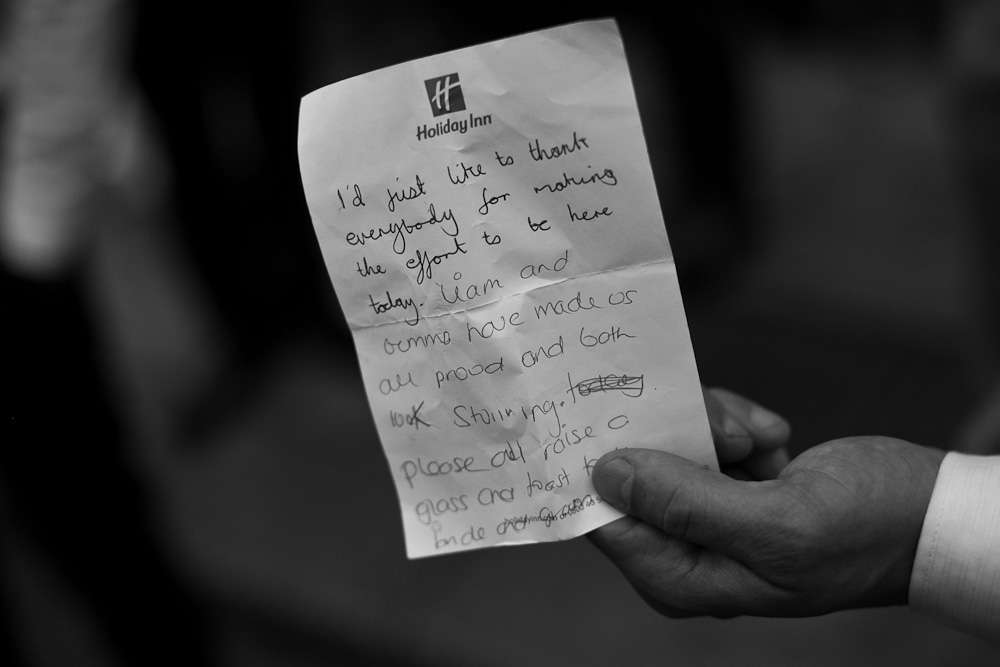 H
Holiday Inn
I'd just like to thank
everybody for making
the effort to be here
today. Liam and
Gemma have made us
all proud and both
look Stunning. today.
please all raise a
glass and toast to
bride and